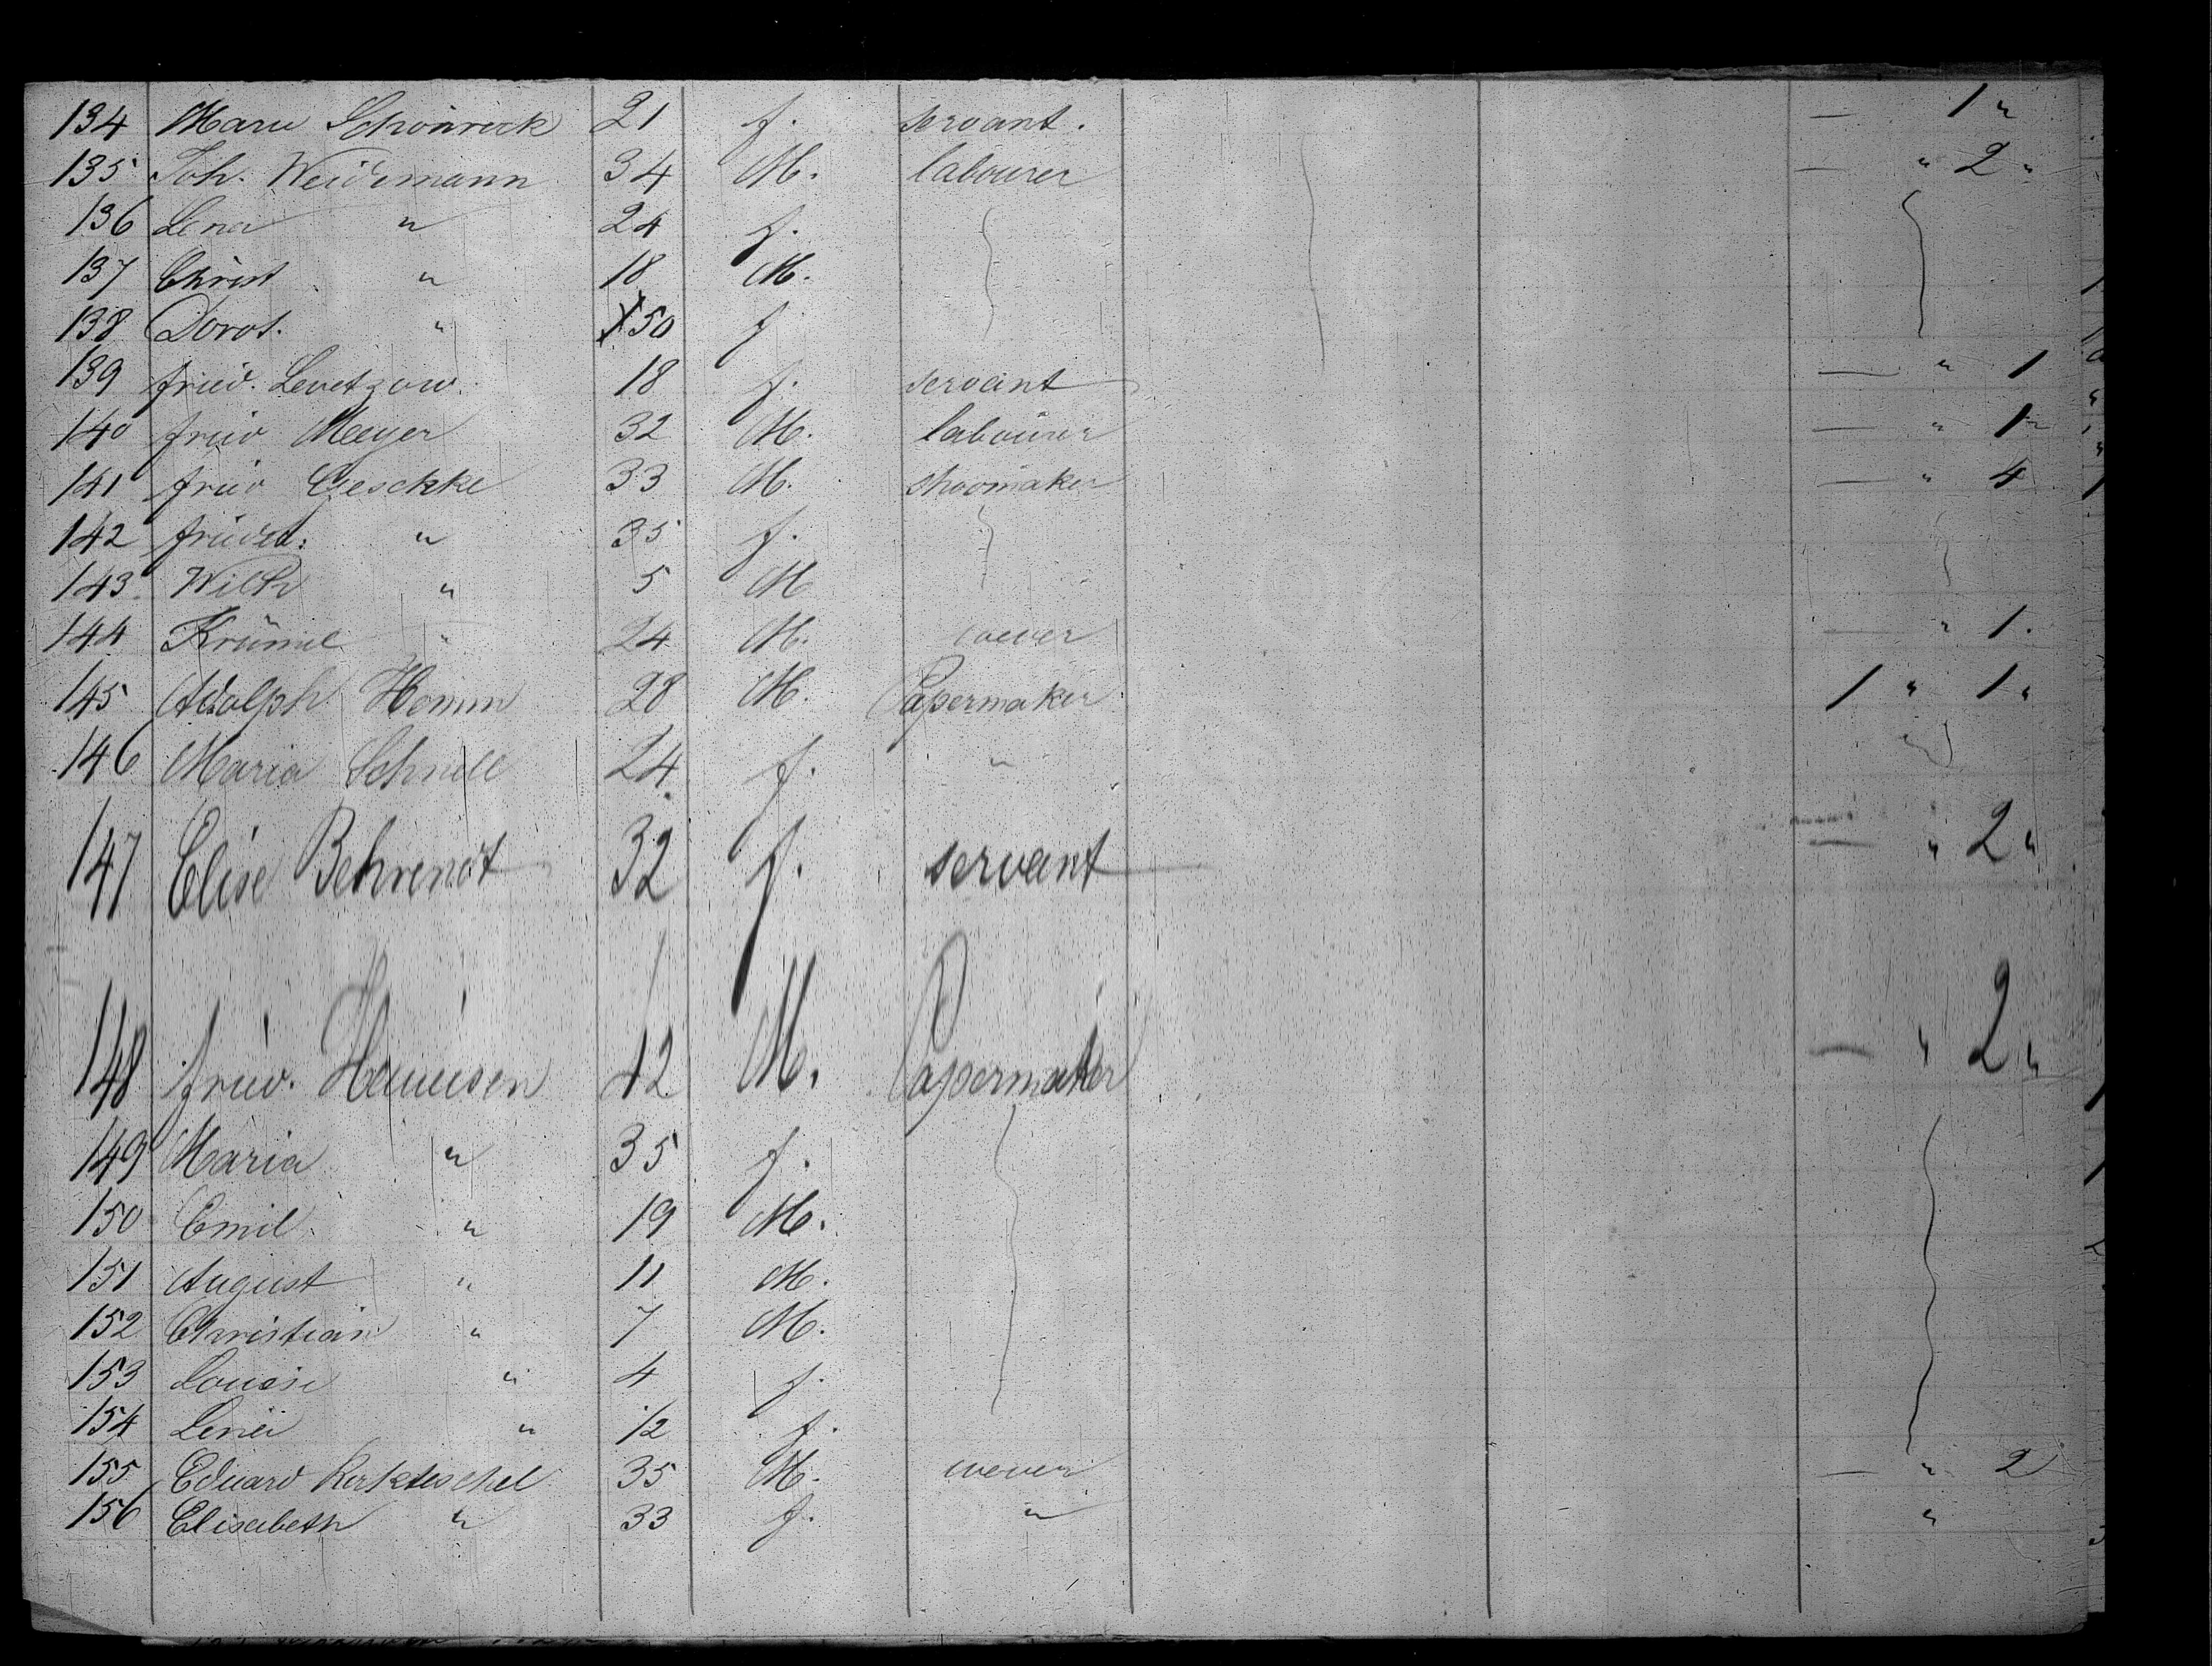 134 Marie Schönrock 21 f. servant. — 1 "
135 Joh. Weidemann 34 M. labourer — " 2 "
136 Lena " 24 f.
137 Christ " 18 M.
138 Dorot. " 50 f
139 fried. Levetzow. 18 f. servant — " 1
140 fried Meyer 32 M. labourer — " 1 "
141 fried Gieschke 33 M. shoomaker — " 4
142 " 35 f.
143 Wilh " 5 M
144 " 24 M. wever — " 1.
145 Adolph Hemm 28 M. Papermaker 1 " 1 "
146 Maria Schnell 24 f. "
147 Elise Behrendt 32 f. servant — " 2 "
148 fried. 42 M. Papermaker — " 2 "
149 Maria " 35 f.
150 Emil " 19 M.
151 August " 11 M.
152 Christian " 7 M.
153 Louise " 4 f.
154 " 1/2 f.
155 Eduard 35 M. wever — " 2
156 Elisabeth " 33 f. " "